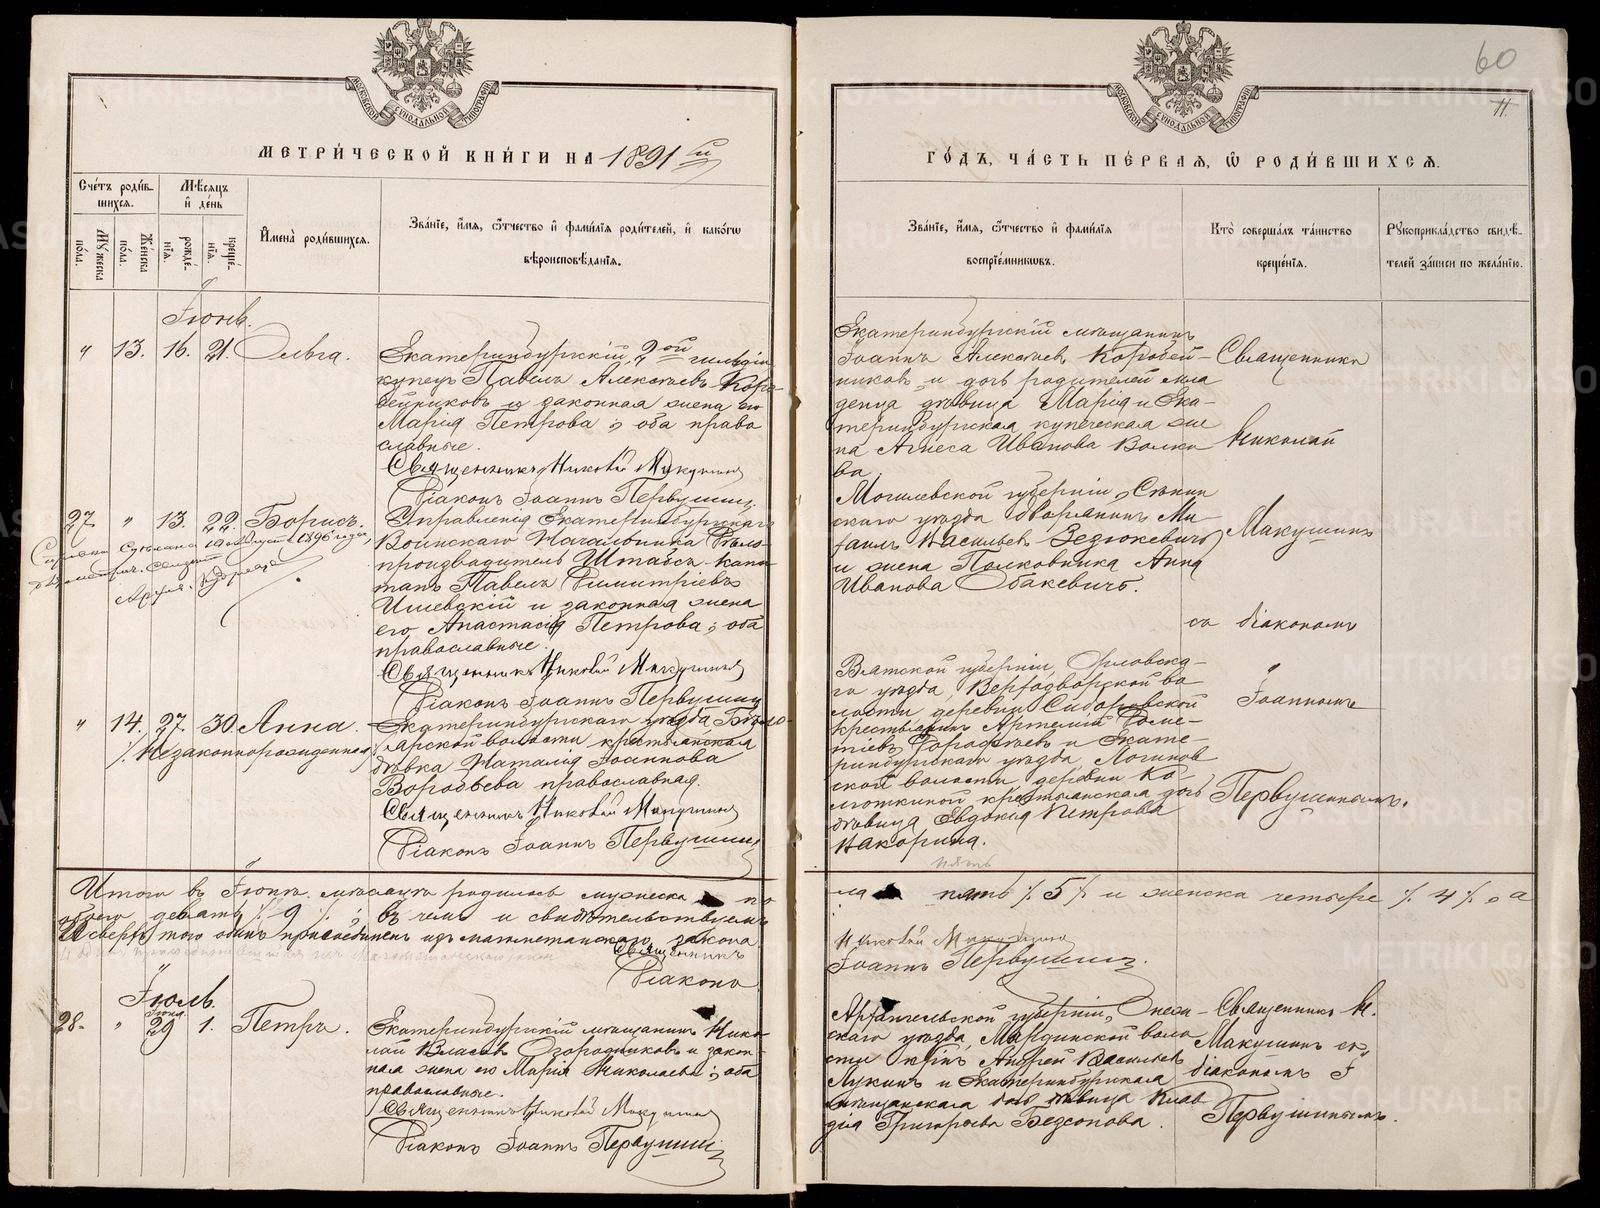 60
11
МОСКОВСКОЙ СѴНОДАЛЬНОЙ ТИПОГРАФІИ
МОСКОВСКОЙ СѴНОДАЛЬНОЙ ТИПОГРАФІИ
МЕТРИ́ЧЕСКОЙ КНИ́ГИ НА 1891 й
ГО́ДЪ, ЧА́СТЬ ПЕ́РВАЯ, Ѡ РОДИ́ВШИХСѦ.
Сче́тъ роди́в-
шихсѧ.
Мѣ́сѧцъ
и҆ де́нь
Мꙋ́жеска
по́ла.
Же́нска
по́ла.
рожде́-
нїѧ.
креще́-
нїѧ.
И҆мена̀ роди́вшихсѧ.
Зва́нїе, и҆́мѧ, ѻ҆́тчество и҆ фами́лїѧ роди́телей, и҆ како́гѡ
вѣроисповѣ́данїѧ.
Зва́нїе, и҆́мѧ, ѻ҆́тчество и҆ фами́лїѧ
воспрїе́мникѡвъ.
Кто̀ соверша́лъ та́инство
креще́нїѧ.
Рꙋкоприкла́дство свидѣ́-
телей за́писи по жела́нїю.
Іюнь.
" 13. 16. 21. Ольга.
Екатеринбургскій 2ой гильдіи
купецъ Павелъ Алексѣевъ Коро-
бейниковъ и законная жена его
Марія Петрова; оба право
славные.
Священникъ Николай Макушинъ
Діаконъ Іоаннъ Первушинъ
Екатеринбургскій мѣщанинъ
Іоаннъ Алексѣевъ Коробей-
никовъ и дочь родителей мла
денца дѣвица Марія и Ека-
теринбургская купеческая же
на Агнеса Иванова Волко
ва.
Священникъ
Николай
27. " 13. 22. Борисъ.
Справка сдѣлана 19 Августа 1896 года,
Управленія Екатеринбургскаго
Воинскаго Начальника Дѣло-
производитель Штабсъ-капи
танъ Павелъ Димитріевъ
Ишевскій и законная жена
его Анастасія Петрова; оба
православные.
Священникъ Николай Макушинъ
Діаконъ Іоаннъ Первушинъ
Могилевской губерніи, Сѣнин
скаго уѣзда дворянинъ Ми
хаилъ Васильевъ Зезюкевичъ
и жена Полковника Анна
Иванова Обакевичъ.
Макушинъ
съ діакономъ
" 14. 27. 30. Анна.
/. Незаконнорожденная
Екатеринбургскаго уѣзда Бѣло-
ярской волости крестьянская
дѣвка Наталія Іоаннова
Воробьева православная.
Священникъ Николай Макушинъ
Діаконъ Іоаннъ Первушинъ
Вятской губерніи, Орловска-
го уѣзда, Верходворской во
лости деревни Сидоровской
крестьянинъ Артемій Деме-
тіевъ Дорофѣевъ и Екате-
ринбургскаго уѣзда, Логинов
ской волости деревни Ко-
лоткиной крестьянская дочь
дѣвица Евдокія Петрова
Накорина.
"
Іоанномъ
Первушинымъ.
Итого въ Іюнѣ мѣсяцѣ родилось мужеска по
ла пять /.5/. и женска четыре /.4/., а
пять
обоего девять /.9/.; въ чемъ и свидѣтельствуемъ
И сверхъ того одинъ присоединенъ изъ магометанскаго закона
Священникъ
Николай Макушинъ
Діаконъ
Іоаннъ Первушинъ.
Іюль.
Іюня
28. " 29 1. Петръ.
Екатеринбургскій мѣщанинъ Нико
лай Власовъ Огородниковъ и закон-
ная жена его Марія Николаева; оба
православные.
Священникъ Николай Макушинъ
Діаконъ Іоаннъ Первушинъ
Архангельской губерніи, Онеж-
скаго уѣзда, Мардинской воло
сти кр-нъ Андрей Васильевъ
Лукинъ и Екатеринбургская
мѣщанская дочь дѣвица Клав
дія Григорьева Безсонова.
Священникъ Н.
Макушинъ съ
діакономъ І.
Первушинымъ.
METRIKI.GASO-URAL.RU